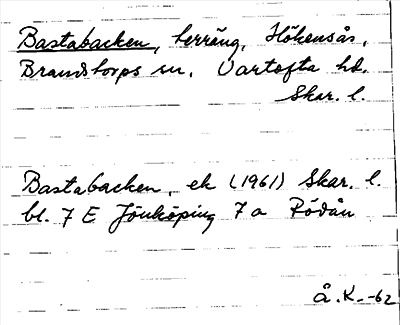 Bastabacken, terräng, Hökensås,
Brandstorps sn. Vartofta hd.
Skar. l.
Bastabacken, ek (1961) Skar. l.
bl. 7 E Jönköping 7 a Rödån
Å.K.-62